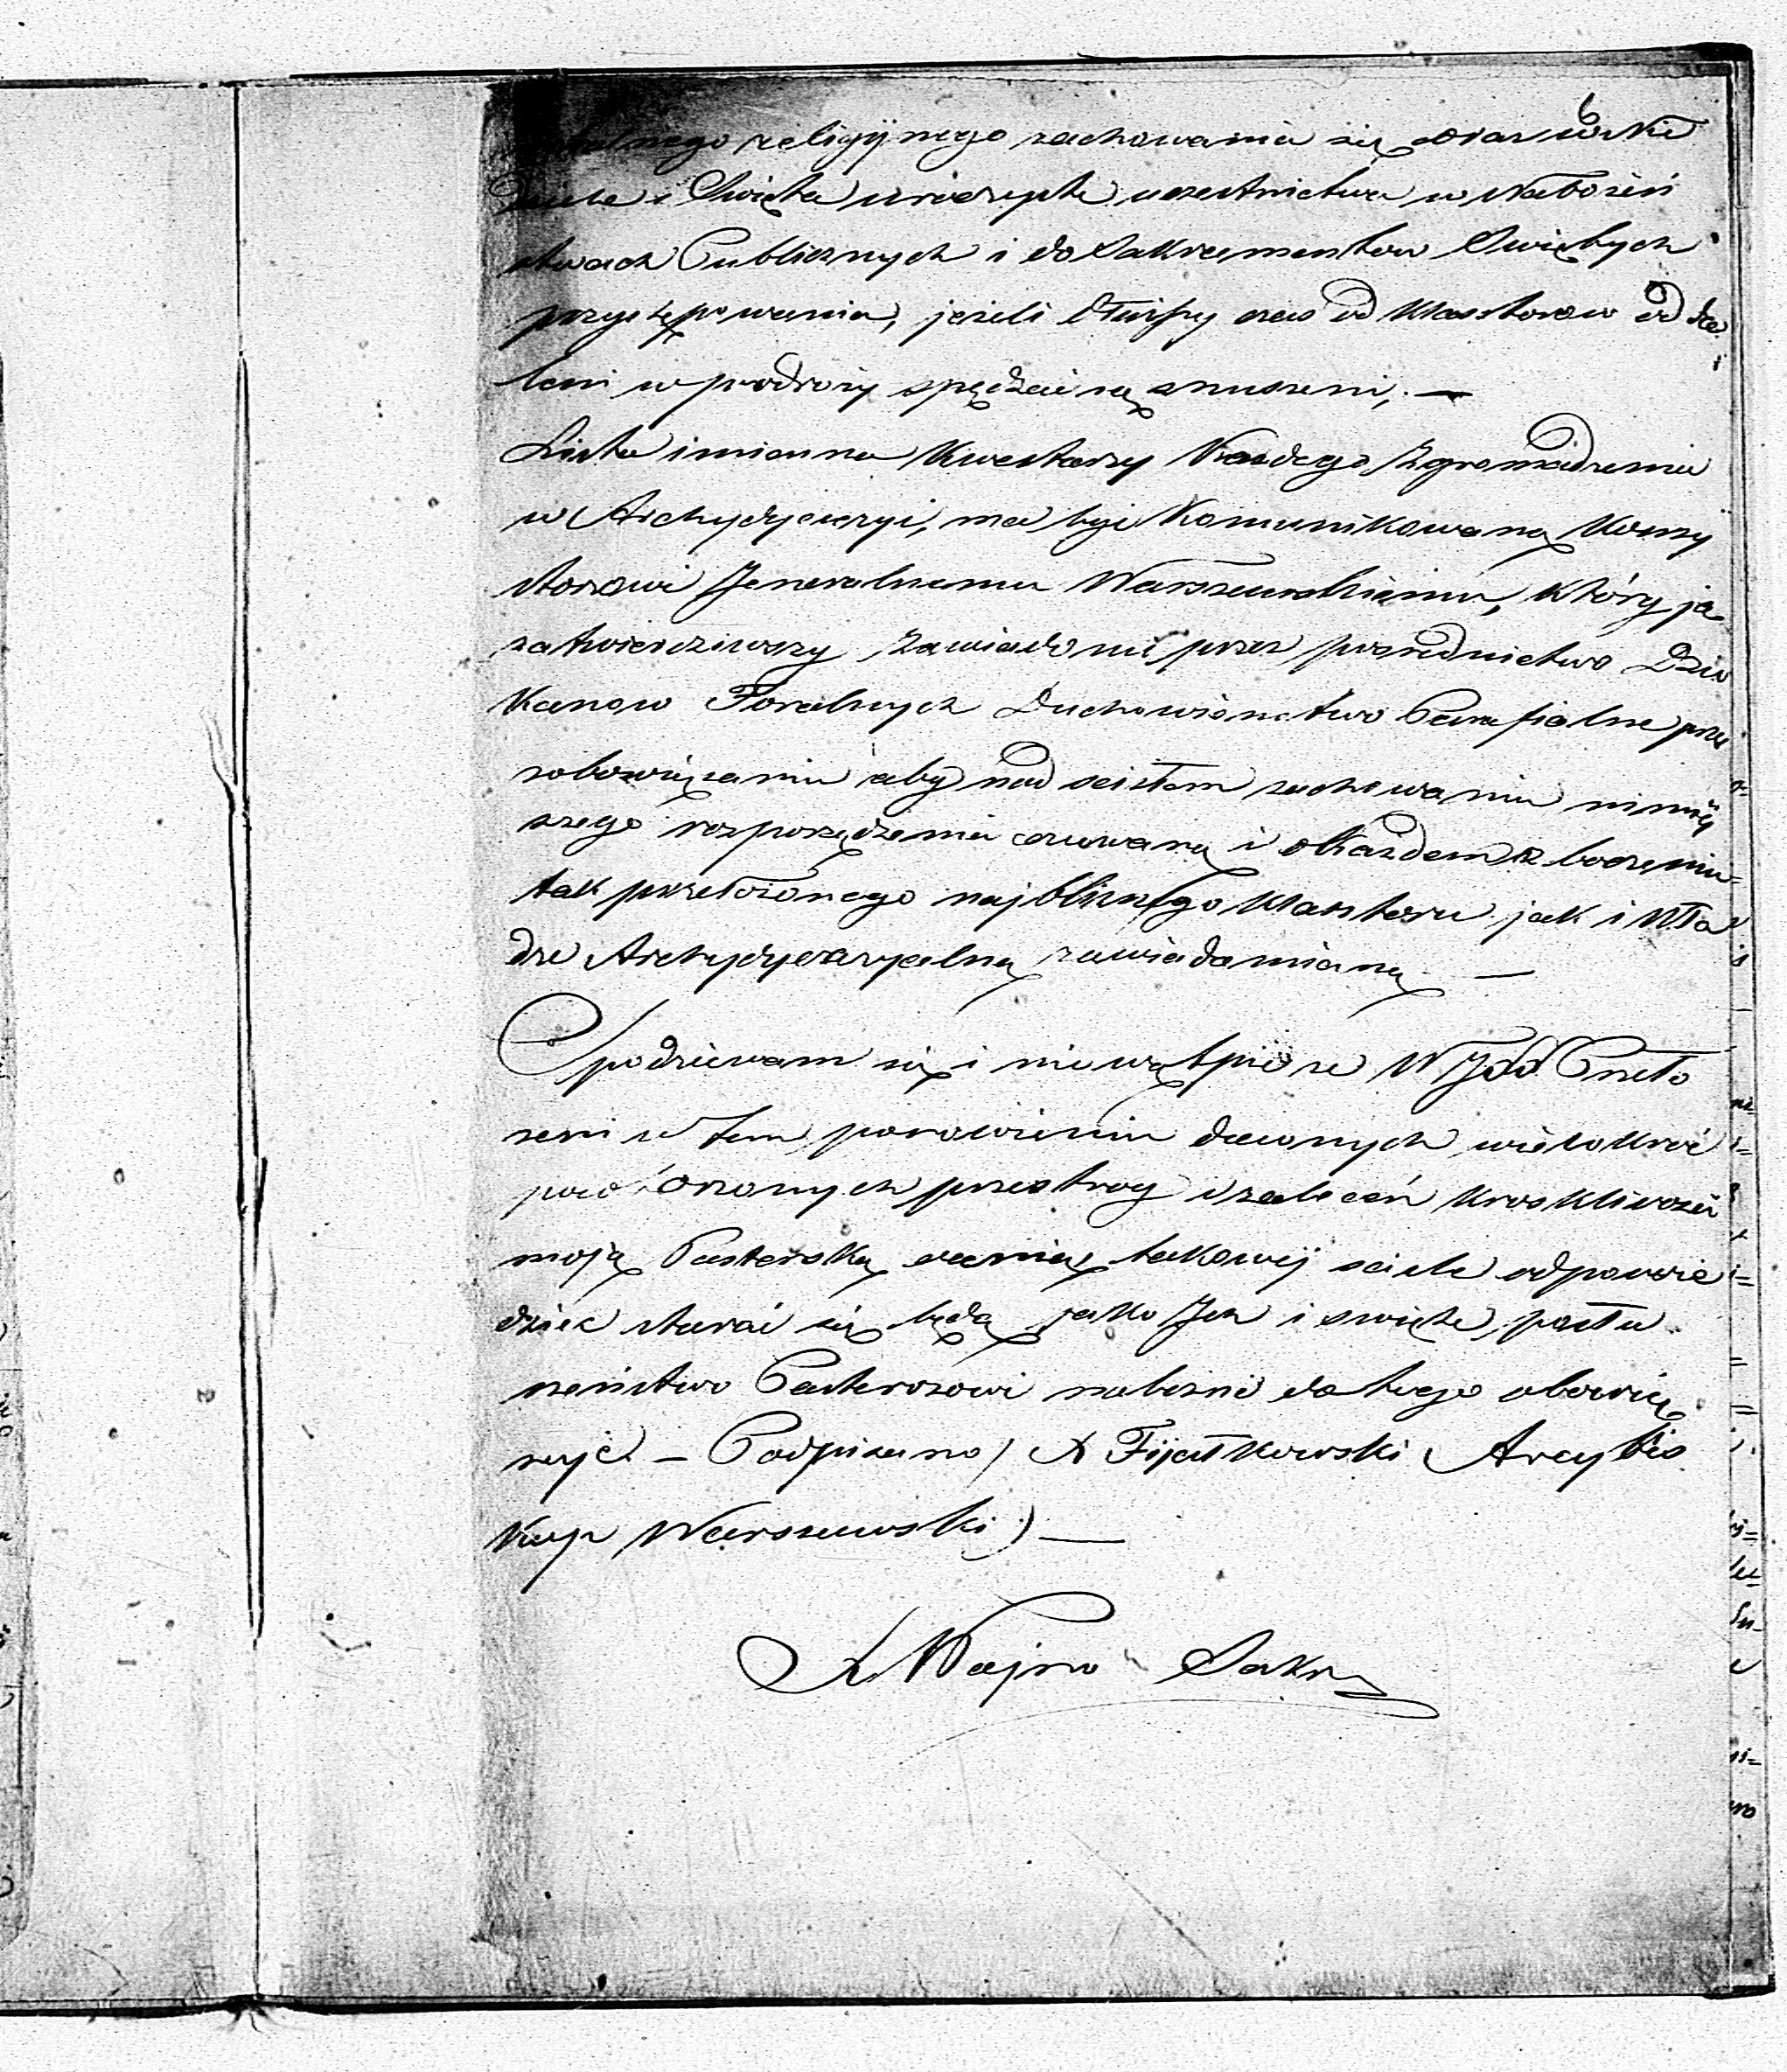 religijnego zachowania się oraz w Nie
dziele i Święta uroczyste uczestnictwa w Nabożeń
stwach Publicznych i do Sakramentow Swiętych
przystępowania, jeżeli dłuższy czas od Klasztorow oddal
leni w podroży spędzać są zmuszeni, —
Lista imienna Kwestarzy Każdego Zgromadzenia
w Archydyecezyi, ma być Komunikowaną Konsy
storzowi Jeneralnemu Warszawskiemu, który ją
zatwierdziwszy zawiadomi przez posrednictwo Dzie
Kanow Foralnych Duchowieństwo Parafialne przy
zobowiązaniu aby nad scisłem zachowaniu niniej
szego rozporządzenia czuwano i o Każdem zboczeniu
tak przełożonego najbliższego Klasztoru jak i Wła
dze Archydyecezyalną zawiadamiano. —
Spodziewam się i nie wątpię że WJXX Przeło
żeni w tem ponowieniu dawnych wielokroć
powtórzonych przestrog i zaleceń troskliwość
moją Pasterską ocenią, takowej sciśle odpowie
dzieć starać się będą, jako Ich i święte posłu
szeństwo Pasterzowi należne do tego obowią
zuje. — Podpisano) X Fijałkowski Arcybis
Kup Warszawski) —
X Wojno Sekr